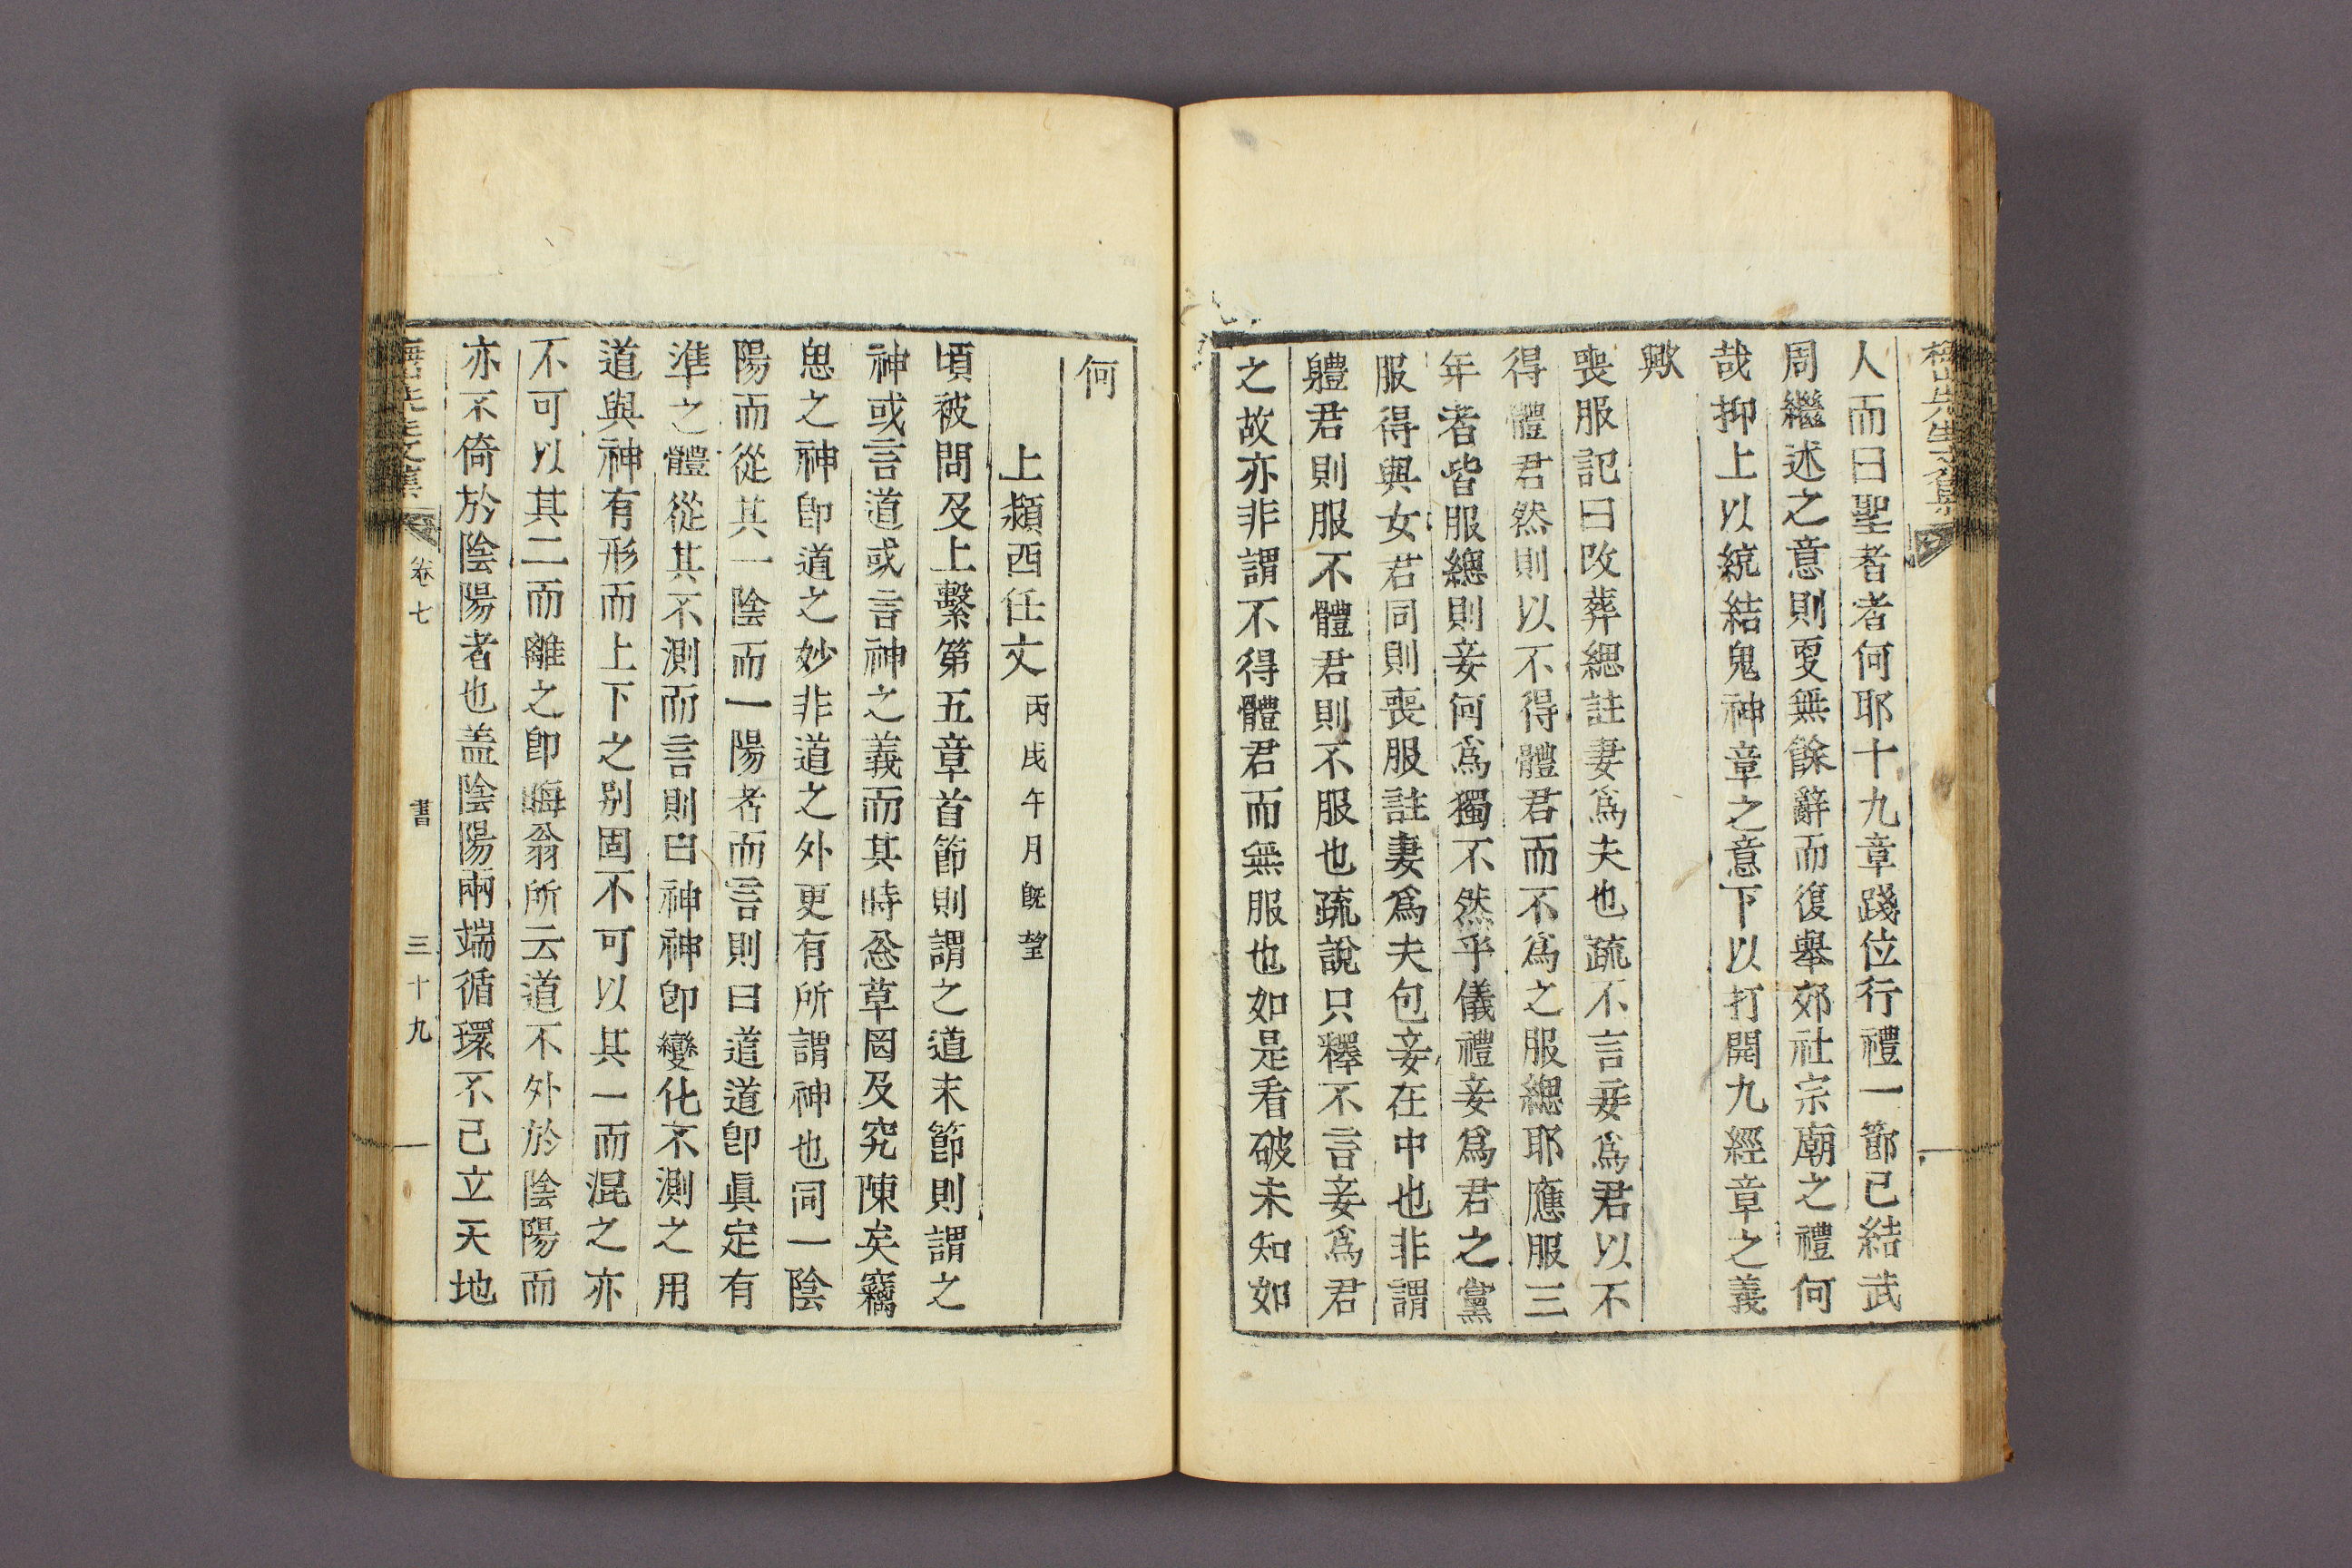 梅山先生文集
人而曰聖者者何耶十九章踐位行禮一節已結武
周繼述之意則更無餘辭而復擧郊社宗廟之禮何
哉抑上以統結鬼神章之意下以打開九經章之義
歟
喪服記曰改葬緦註妻爲夫也疏不言妾爲君以不
得體君然則以不得體君而不爲之服緦耶應服三
年者皆服緦則妾何爲獨不然乎儀禮妾爲君之黨
服得與女君同則喪服註妻爲夫包妾在中也非謂
軆君則服不體君則不服也疏說只釋不言妾爲君
之故亦非謂不得體君而無服也如是看破未知如
何
上潁西任丈丙戌午月旣望
頃被問及上繫第五章首節則謂之道末節則謂之
神或言道或言神之義而其時忩草罔及究陳矣竊
思之神卽道之妙非道之外更有所謂神也同一陰
陽而從其一陰而一陽者而言則曰道道卽眞定有
準之體從其不測而言則曰神神卽變化不測之用
道與神有形而上下之别固不可以其一而混之亦
不可以其二而離之卽晦翁所云道不外於陰陽而
亦不倚於陰陽者也盖陰陽兩端循環不已立天地
梅山先生文集
卷七
書
三十九